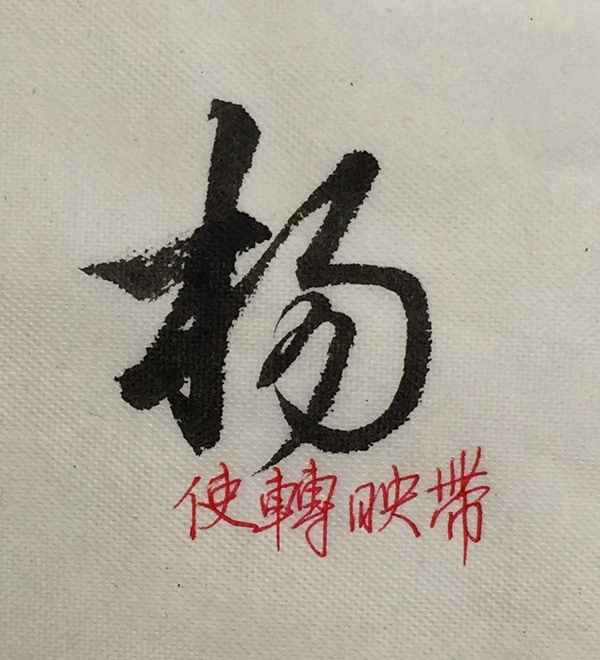 杨
使轉映带